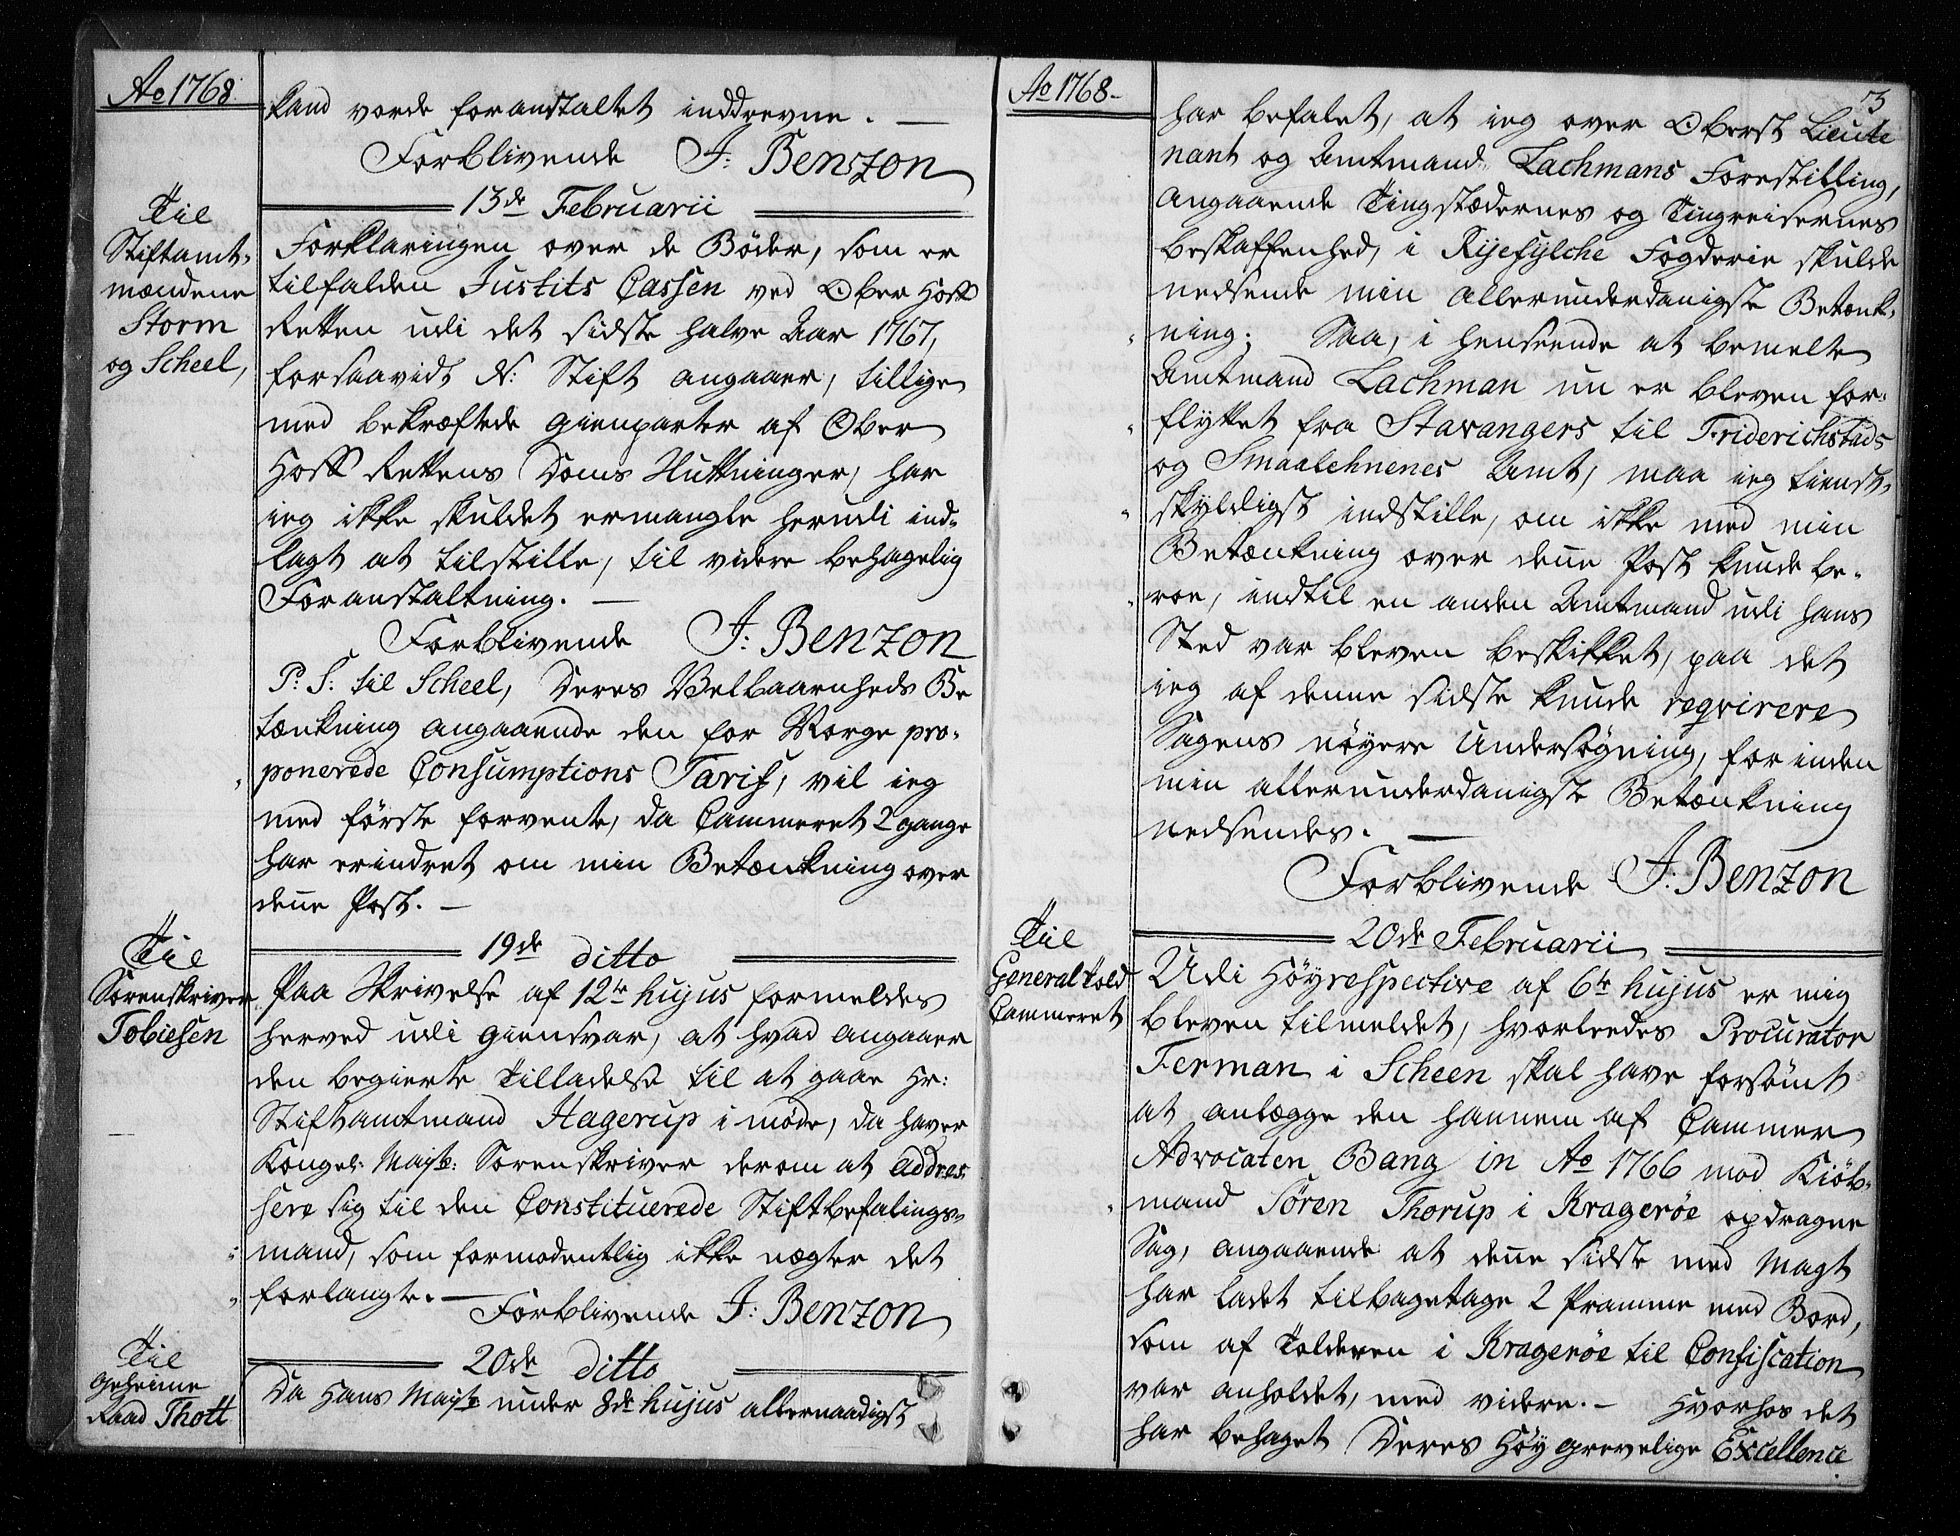 Ao 1768
kand vorde foranstaltet inddrevne. —
Forblivende J: Benzon
13de Februarii
Til
Stiftamt-
mændene
Storm
og Scheel,
Forklaringen over de Bøder, som er
tilfalden Justits Cassen ved Ober Hoff
Retten udi det sidste halve Aar 1767,
forsaavidt N: Stift angaaer, tillige
med bekræftede Gienparter af Ober
Hoff Rettens Doms Slutninger, har
ieg ikke skuldet ermangle herudi ind-
lagt at tilstille, til videre behagelig
Foranstaltning. —
Forblivende J: Benzon
P: S: til Scheel, Deres Velbaarnheds Be
tænkning angaaende den for Norge pro-
ponerede Consumptions Tarif, vil ieg
med første forvente, da Cammeret 2 gange
har erindret om min Betænkning over
denne Post. —
19de ditto
Til
Sorenskriver
Tobiesen
Paa Skrivelse af 12te hujus formeldes
herved udi Giensvar, at hvad angaaer
den begierte Tilladelse til at gaae Hr:
Stiftamtmand Hagerup i møde, da haver
Kongel: Mayts: Sorenskriver derom at addres-
sere sig til den Constituerede Stiftbefalings-
mand, som formodentlig ikke nægter det
forlangte. —
Forblivende J: Benzon
20de ditto
Til
Geheime
Raad Thott
Da Hans Mayts under 8de hujus allernaadigst
Ao 1768-
3
har befalet, at ieg over Oberst Lieute
nant og Amtmand Lachmans Forestilling,
angaaende Tingstædernes og Tingreisernes
beskaffenhed, i Ryefylche Fogderie skulde
nedsende min allerunderdanigste Betænk-
ning; Saa, i henseende at bemelte
Amtmand Lachman nu er bleven for-
flyttet fra Stavangers til Friderichstads
og Smaalehnenes Amt, maa ieg tienst-
skyldigst indstille, om ikke med min
Betænkning over denne Post kunde be-
roe, indtil en anden Amtmand udi hans
Sted var bleven beskikket, paa det
ieg af denne sidste kunde reqvirere
Sagens nøyere Undersøgning, for inden
min allerunderdanigste Betænkning
nedsendes. —
Forblivende J: Benzon
20de Februarii
Til
General Told
Cammeret
Udi Høyrespective af 6te hujus er mig
bleven tilmeldet, hvorledes Procurator
Ferman i Scheen skal have forsømt
at anlægge den hannem af Cammer
Advocaten Bang in Ao 1766 mod Kiøb-
mand Søren Thorup i Kragerøe opdragne
Sag, angaaende at denne sidste med Magt
har ladet tilbagetage 2 Pramme med Bord,
som af Tolderen i Kragerøe til Confiscation
var anholdet, med videre. — Hvorhos det
har behaget Deres Høy Grevelige Excellence